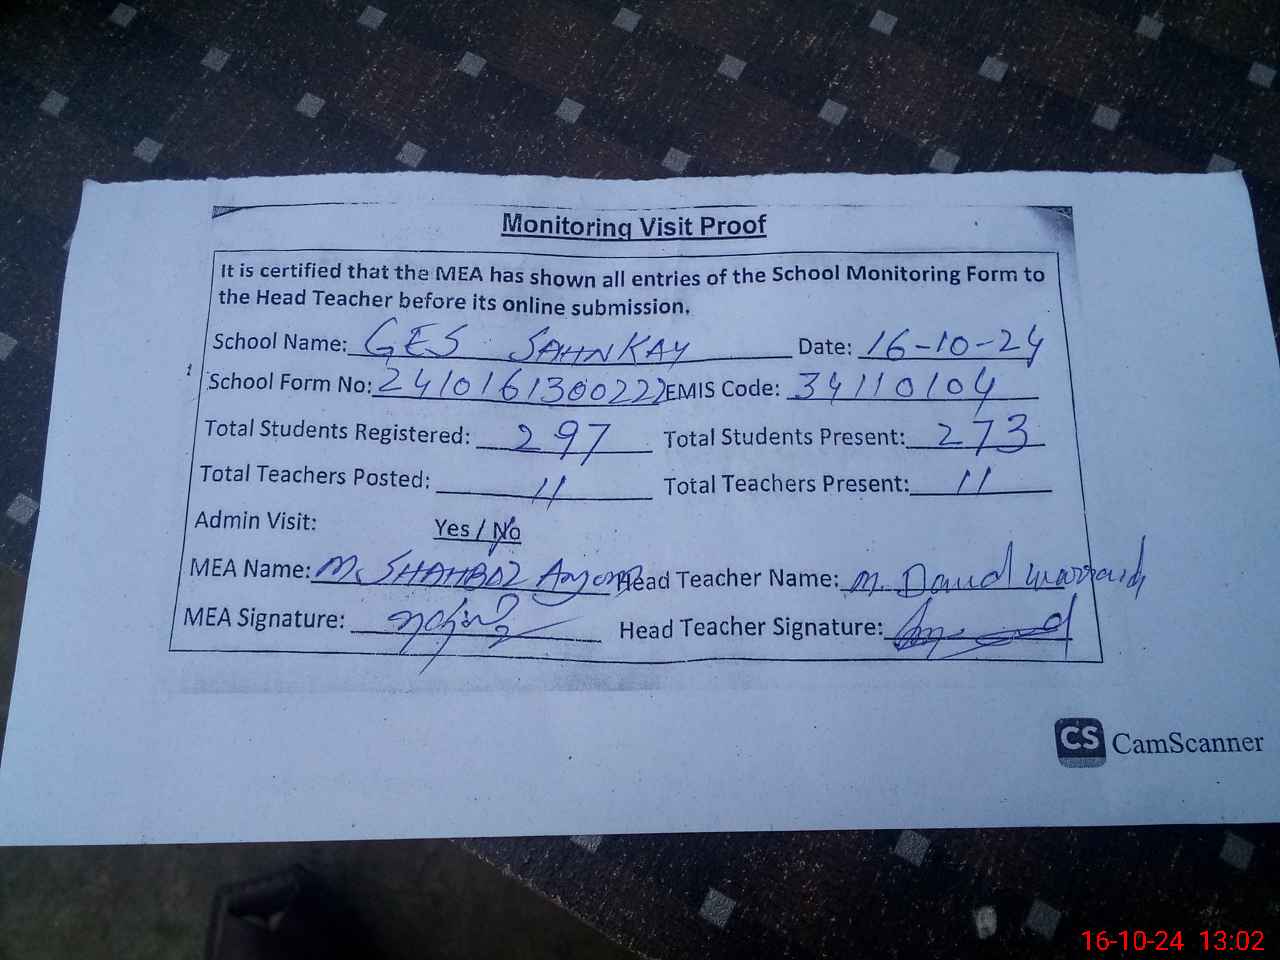 Monitoring Visit Proof
It is certified that the MEA has shown all entries of the School Monitoring Form to
the Head Teacher before its online submission.
School Name: GES SAHNKAY Date: 16-10-24
School Form No: 2410161300222 EMIS Code: 34110104
Total Students Registered: 297 Total Students Present: 273
Total Teachers Posted: 11 Total Teachers Present: 11
Admin Visit: Yes / No
MEA Name: M. SHAHBAZ Head Teacher Name: M. Daud
MEA Signature: Head Teacher Signature:
CS CamScanner
16-10-24 13:02